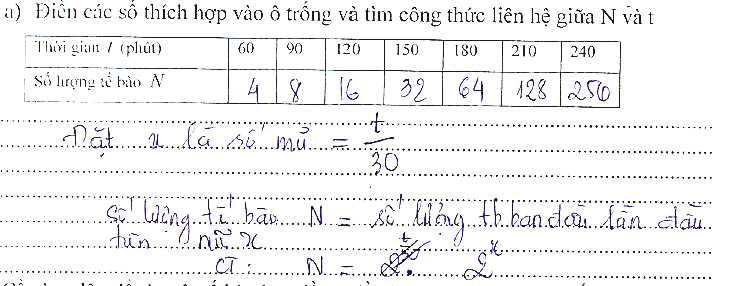 a) Điền các số thích hợp vào ô trống và tìm công thức liên hệ giữa N và t
Thời gian t (phút) 60 90 120 150 180 210 240
Số lượng tế bào N 4 8 16 32 64 128 256
Đặt x là số mũ = t/30
số lượng tế bào N = số lượng tb ban đầu lần đầu
trên mũ x
N = 2^x